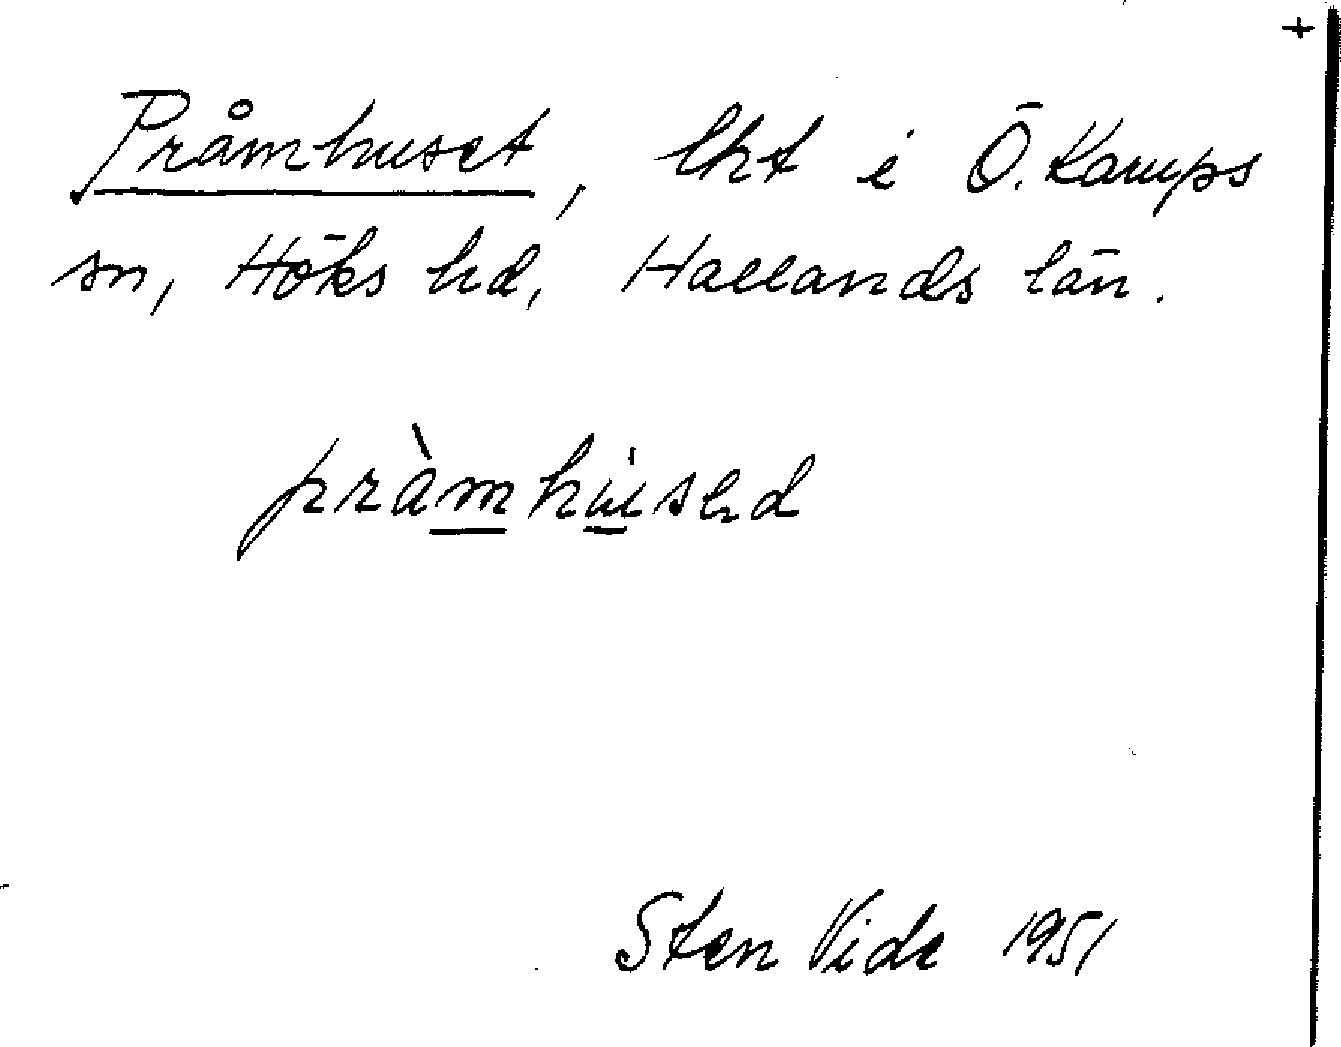 +
Pråmhuset, lht i Ö. Karups
sn, Höks hd, Hallands län.
pràmhu̇sed
Sten Vide 1951